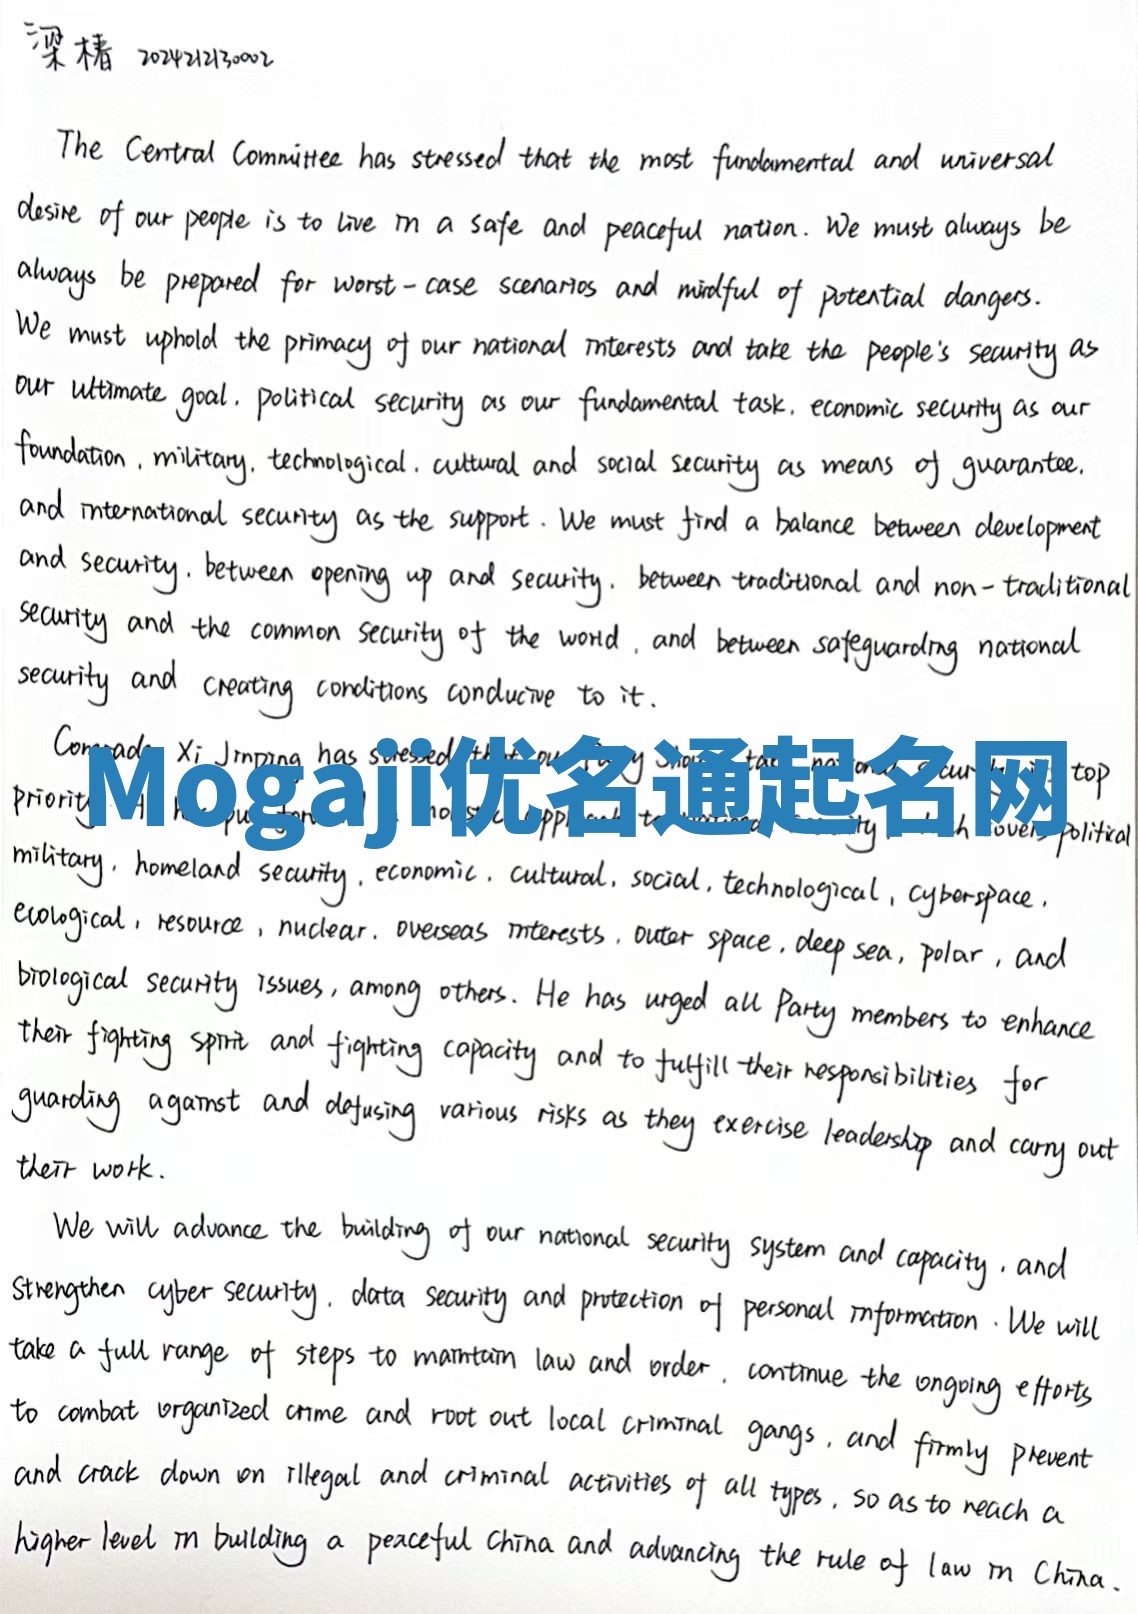 梁椿 2024212130002
The Central Committee has stressed that the most fundamental and universal
desire of our people is to live in a safe and peaceful nation. We must always be
always be prepared for worst-case scenarios and mindful of potential dangers.
We must uphold the primacy of our national interests and take the people's security as
our ultimate goal, political security as our fundamental task, economic security as our
foundation, military, technological, cultural and social security as means of guarantee,
and international security as the support. We must find a balance between development
and security, between opening up and security, between traditional and non-traditional
security and the common security of the world, and between safeguarding national
security and creating conditions conducive to it.
Comrade Xi Jinping has stressed that our Party should take national security its top
Mogaji优名通起名网
priority. He has put forward a holistic approach to national security, which covers political
military, homeland security, economic, cultural, social, technological, cyberspace,
ecological, resource, nuclear, overseas interests, outer space, deep sea, polar, and
biological security issues, among others. He has urged all Party members to enhance
their fighting spirit and fighting capacity and to fulfill their responsibilities for
guarding against and defusing various risks as they exercise leadership and carry out
their work.
We will advance the building of our national security system and capacity, and
strengthen cyber security, data security and protection of personal information. We will
take a full range of steps to maintain law and order, continue the ongoing efforts
to combat organized crime and root out local criminal gangs, and firmly prevent
and crack down on illegal and criminal activities of all types, so as to reach a
higher level in building a peaceful China and advancing the rule of law in China.